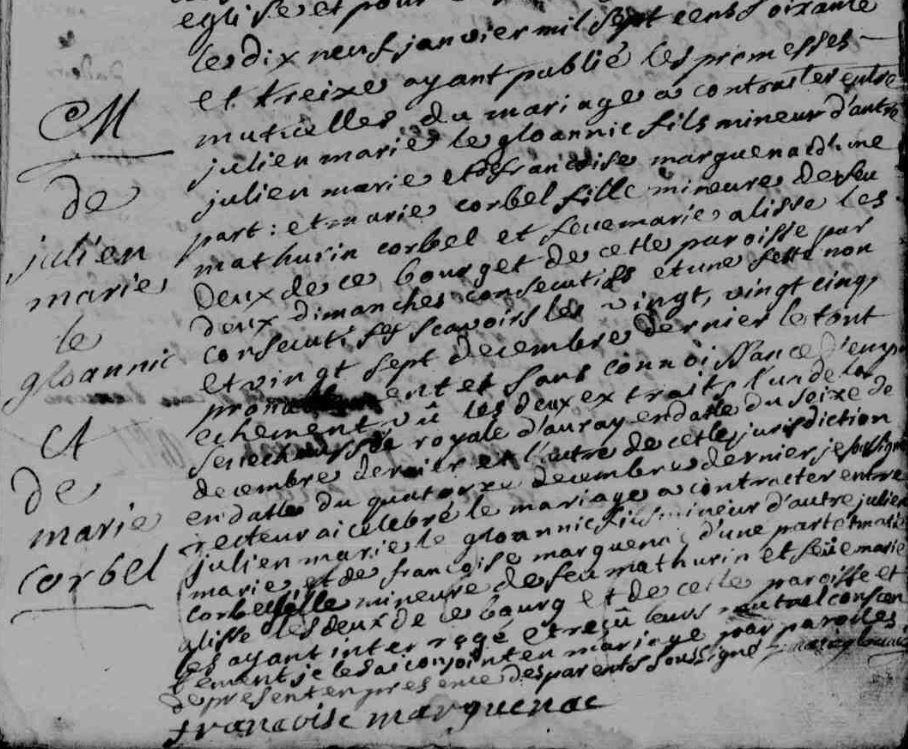 eglise et pour
le dix neuf janvier mil sept cent soixante
et treize ayant publié les promesses
mutuelles du mariage a contracter entre
julien marie le gloannic fils mineur d'autre
julien marie et de francoise marguenac d'une
part : et marie corbel fille mineure de feu
mathurin corbel et feue marie alisse les
deux de ce bourg et de cette paroisse par
deux dimanches consecutifs et une feste non
consecutifs scavoir les vingt, vingt cinq,
et vingt sept decembre dernier le tout
et sans connoissance d'emp
echement vû les deux extraits l'un de la
senechaussé royale d'auray en datte du seize de
decembre dernier et l'autre de cette jurisdiction
en datte du quatorze decembre dernier je soussigné
recteur ai célébré le mariage a contracter entre
julien marie le gloannic fils mineur d'autre julien
marie et de francoise marguenac d'une part et marie
corbel fille mineure de feu mathurin et feüe marie
alisse les deux de ce bourg et de cette paroisse et
les ayant interrogé et reçû leurs mutuel consen
tement je les ai conjoint en mariage par paroles
de present en presence des parents soussigné
francoise marguenac
M
de
julien
marie
le
gloannic
et
de
marie
corbel